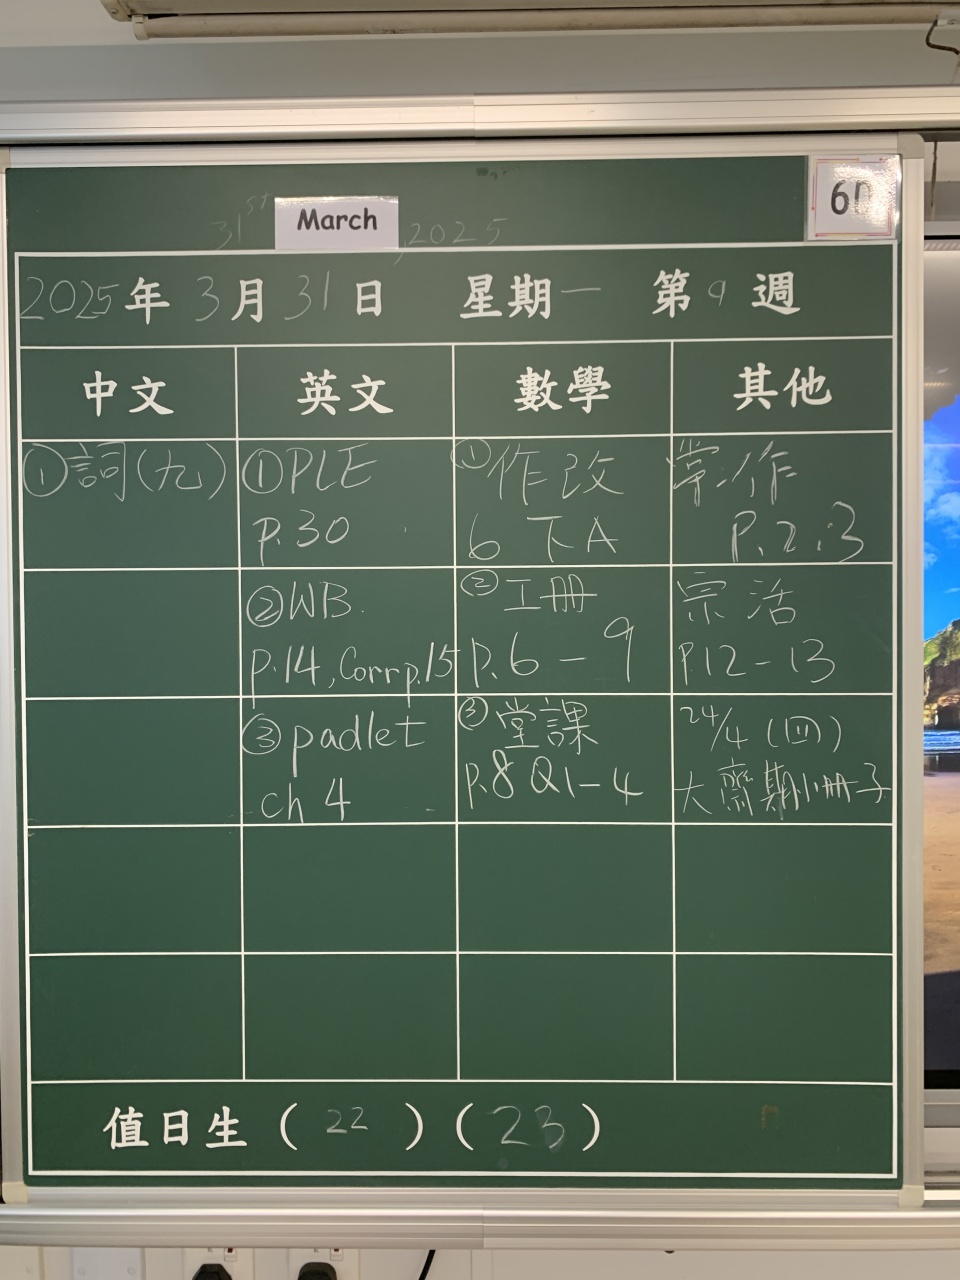 31st March, 2025
2025年3月31日 星期一 第9週
中文 英文 數學 其他
①詞(九)
①PLE
p.30
②WB.
p.14, Corr p.15
③padlet
ch 4
①作改
6下A
②工冊
p.6-9
③堂課
p.8 Q1-4
常:作
P.2,3
宗活
P.12-13
24/4 (四)
大齋期小冊子
值日生(22)(23)